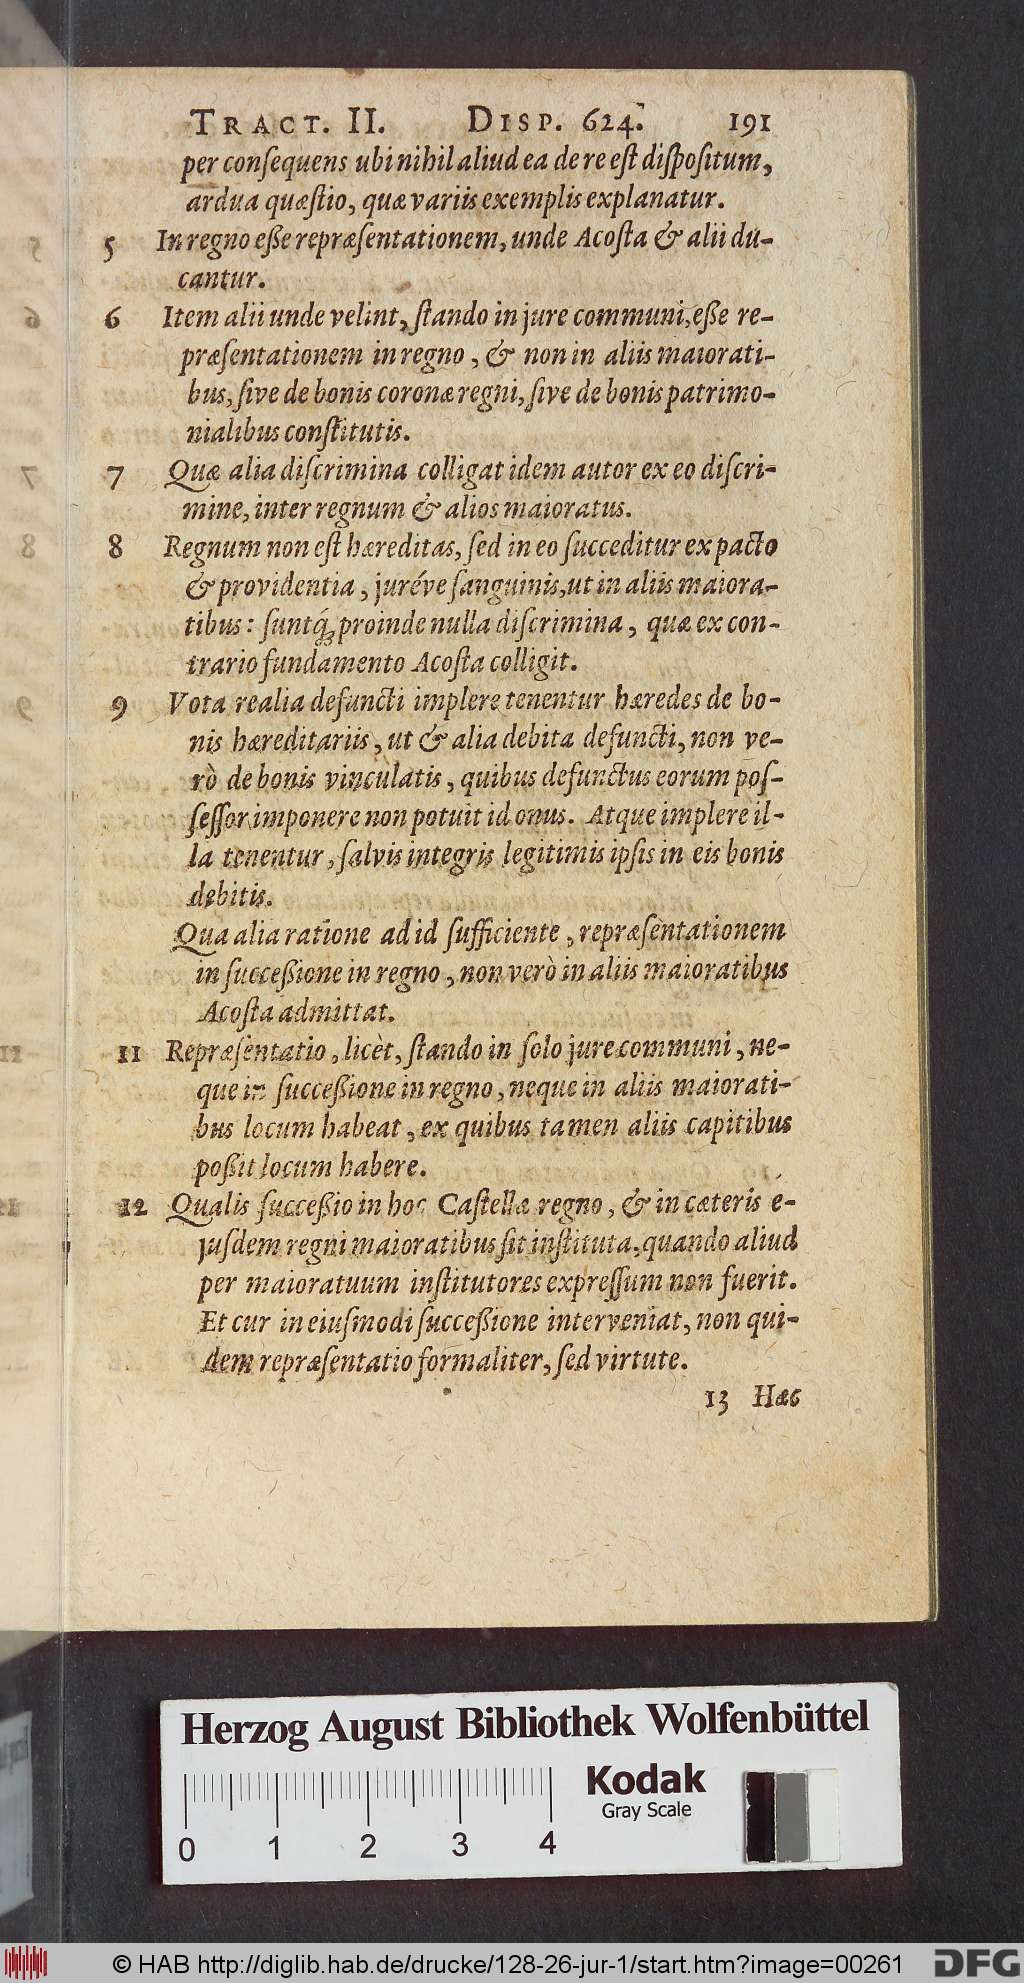 TRACT. II. DISP. 624. 191
per conſequens ubi nihil aliud ea de re eſt diſpoſitum,
ardua quæſtio, quæ variis exemplis explanatur.
5 In regno eße repræſentationem, unde Acoſta & alii du-
cantur.
6 Item alii unde velint, ſtando in jure communi, eße re-
præſentationem in regno, & non in aliis maiorati-
bus, ſive de bonis coronæ regni, ſive de bonis patrimo-
nialibus conſtitutis.
7 Quæ alia diſcrimina colligat idem autor ex eo diſcri-
mine, inter regnum & alios maioratus.
8 Regnum non eſt hæreditas, ſed in eo ſucceditur ex pacto
& providentia, juréve ſanguinis, ut in aliis maiora-
tibus: ſuntq́; proinde nulla diſcrimina, quæ ex con-
trario fundamento Acoſta colligit.
9 Vota realia defuncti implere tenentur hæredes de bo-
nis hæreditariis, ut & alia debita defuncti, non ve-
rò de bonis vinculatis, quibus defunctus eorum poſ-
ſeſſor imponere non potuit id onus. Atque implere il-
la tenentur, ſalvis integris legitimis ipſis in eis bonis
debitis.
Qua alia ratione ad id ſufficiente, repræſentationem
in ſucceßione in regno, non verò in aliis maioratibus
Acoſta admittat.
11 Repræſentatio, licèt, ſtando in ſolo jure communi, ne-
que in ſucceßione in regno, neque in aliis maiorati-
bus locum habeat, ex quibus tamen aliis capitibus
poßit locum habere.
12 Qualis ſucceßio in hoc Caſtellæ regno, & in cæteris e-
juſdem regni maioratibus ſit inſtituta, quando aliud
per maioratuum inſtitutores expreſſum non fuerit.
Et cur in eiuſmodi ſucceßione interveniat, non qui-
dem repræſentatio formaliter, ſed virtute.
13 Hæc
Herzog August Bibliothek Wolfenbüttel
Kodak
Gray Scale
0 1 2 3 4
© HAB http://diglib.hab.de/drucke/128-26-jur-1/start.htm?image=00261
DFG